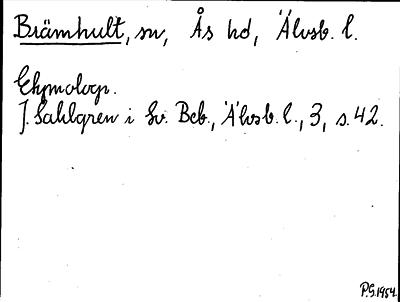 Brämhult, sn, Ås hd, Älvsb. l.
Etymologi.
J. Sahlgren i Sv. Beb., Älvsb. l., 3, s. 42.
P.G. 1954